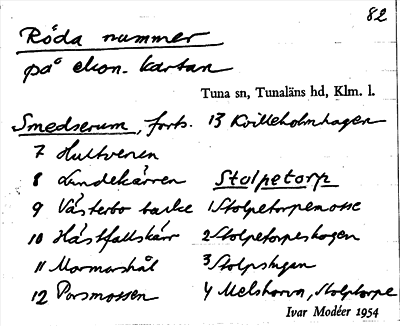 82
Röda nummer
på ekon. kartan
Tuna sn, Tunaläns hd, Klm. l.
Smedserum, forts.
7 Hultvenen
8 Lindekärren
9 Västerbo backe
10 Hästfallskärr
11 Marmorshål
12 Porsmossen
13 Kvilleholmhagen
Stolpetorp
1 Stolpetorpemosse
2 Stolpetorpeskogen
3 Stolpstugan
4 Melshorva, Stolptorpe
Ivar Modéer 1954